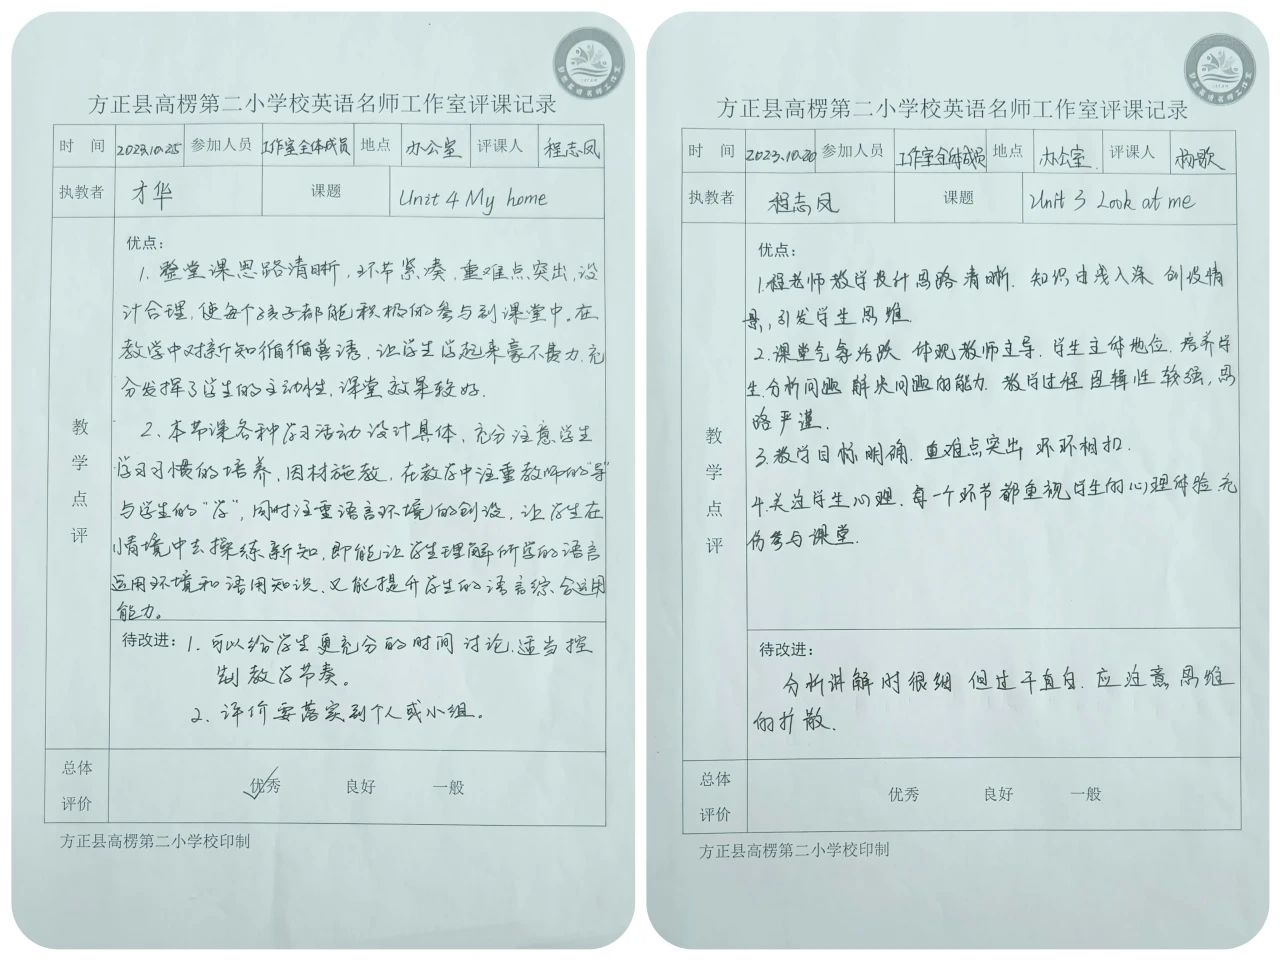 方正县高楞第二小学校英语名师工作室评课记录
时 间 2023.10.25 参加人员 工作室全体成员 地点 办公室 评课人 程志凤
执教者 才华 课题 Unit 4 My home
教学点评
优点:
1. 整堂课思路清晰,环节紧凑,重难点突出,设
计合理,使每个孩子都能积极的参与到课堂中。在
教学中对新知循循善诱,让学生学起来毫不费力,充
分发挥了学生的主动性,课堂效果较好。
2、本节课各种学习活动设计具体,充分注意学生
学习习惯的培养,因材施教,在教学中注重教师的"导"
与学生的"学",同时注重语言环境的创设,让学生在
情境中去操练新知,即能让学生理解所学的语言
运用环境和语用知识,又能提升学生的语言综合运用
能力。
待改进:1. 可以给学生更充分的时间讨论,适当控
制教学节奏。
2、评价要落实到个人或小组。
总体评价 优秀 良好 一般
方正县高楞第二小学校印制
方正县高楞第二小学校英语名师工作室评课记录
时 间 2023.10.20 参加人员 工作室全体成员 地点 办公室. 评课人
执教者 程志凤 课题 Unit 3 Look at me
教学点评
优点:
1.程老师教学设计思路清晰. 知识由浅入深 创设情
景,引发学生思维.
2.课堂气氛活跃 体现教师主导.学生主体地位.培养学
生分析问题 解决问题的能力 教学过程逻辑性较强,思
路严谨.
3.教学目标明确. 重难点突出 环环相扣.
4.关注学生心理.每一个环节都重视学生的心理体验 充
份参与课堂.
待改进:
分析讲解时很细 但过于直白. 应注意思维
的扩散.
总体评价 优秀 良好 一般
方正县高楞第二小学校印制